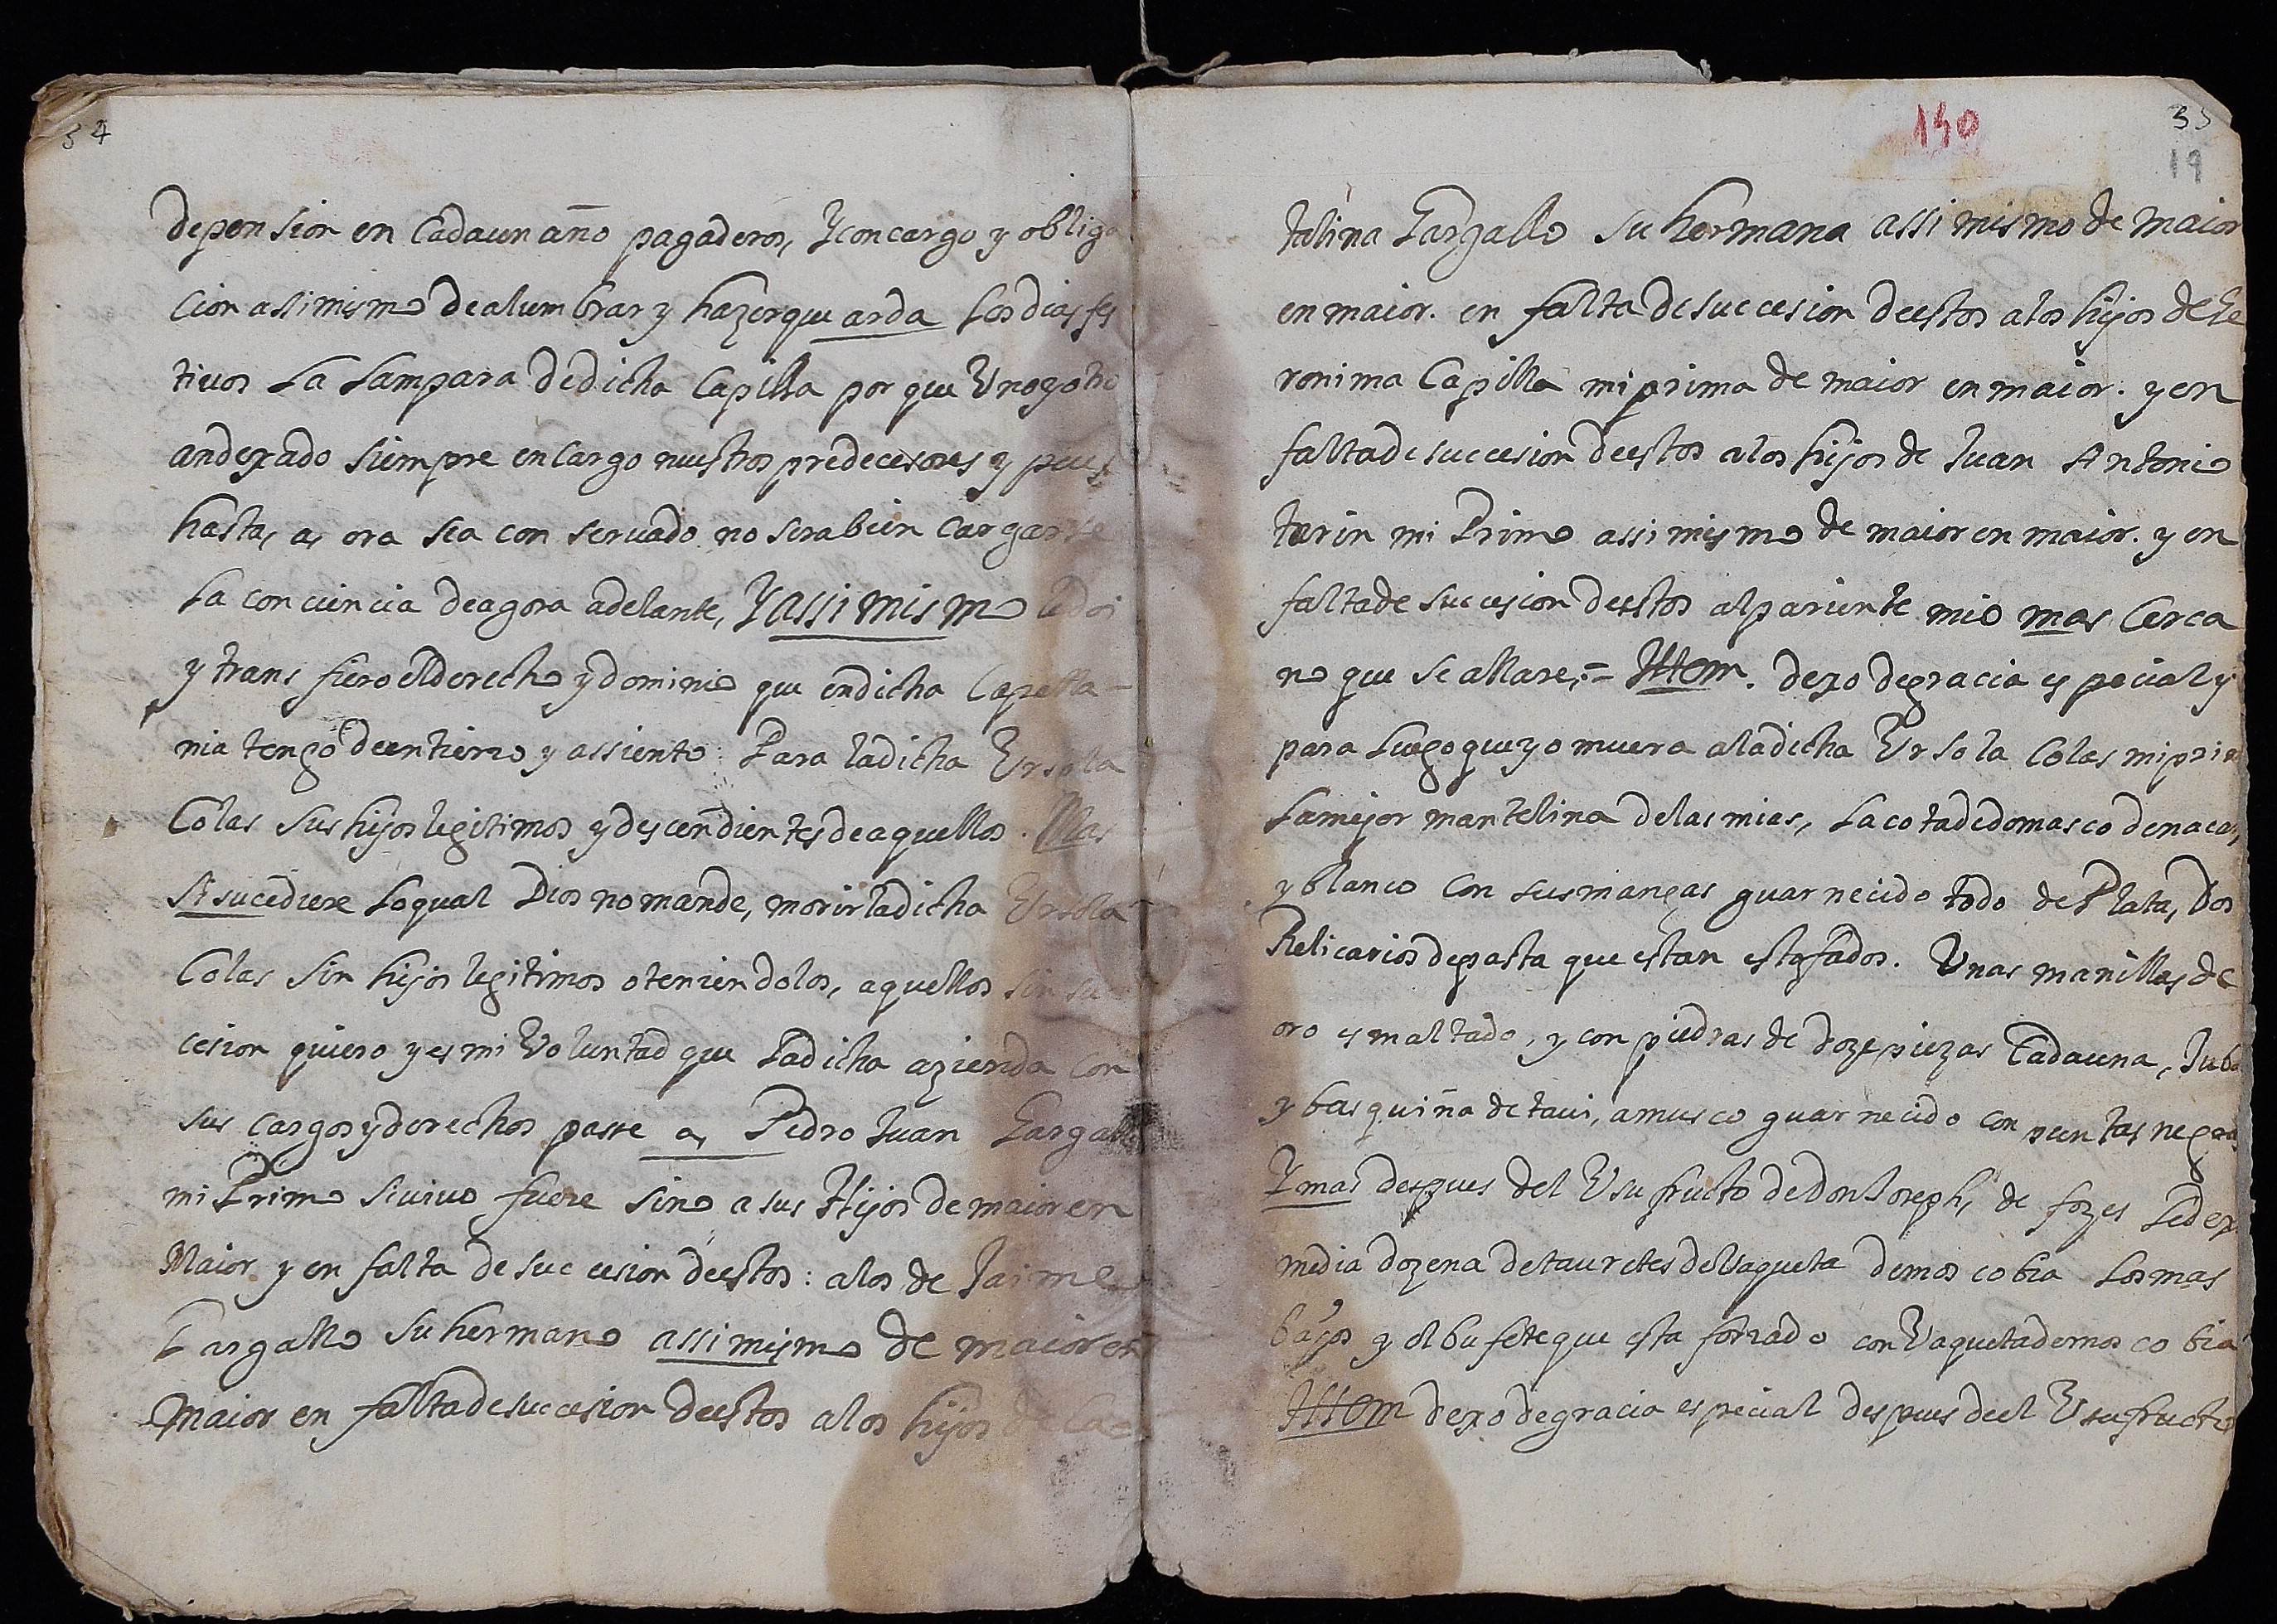 34
depension en Cadaun año pagaderos, Y con cargo y obliga
cion assimismo de alumbrar y hazer que arda Los dias fes
tiuos La Lampara de dicha Capilla por que Uno y otro
an dexado siempre en cargo nuestros predecesores y pues
hasta, a, ora sea con seruado no sera bien cargarse
La conciencia de agora adelante, Y assi mismo le doi
y trans fiero el derecho y dominio que en dicha Capella-
nia tengo de entierro y assiento: Para la dicha Ursola
Colas Sus hijos legitimos y descendientes de aquellos. Mas
Si sucediere Lo qual Dios no mande, morir la dicha Ursola
Colas Sin hijos legitimos o teniendolos, aquellos sin su
cesion quiero y es mi Voluntad que La dicha azienda con
sus cargos y derechos passe a, Pedro Juan Gargallo
mi Primo si uiuo fuere sino a sus Hijos de maior en
Maior y en falta de succesion de estos: a los de Jaime
Gargallo Su hermano assi mismo de maior en
Maior en falta de succesion de estos a los hijos de Ca
130
35
19
talina Gargallo su hermana assi mismo de maior
en maior. en falta de succesion de estos a los hijos de Ge
ronima Capilla mi prima de maior en maior. y en
falta de succesion de estos a los hijos de Juan Antonio
tarin mi Primo assi mismo de maior en maior. y en
falta de succesion de estos al pariente mio mas Cerca
no que se allare,= Ittem. dexo de gracia especial y
para Luego que yo muera a la dicha Ursola Colas mi prima
La mejor mantelina de las mias, La cota de domasco de nacar,
y blanco con sus mangas guarnecido todo de Plata, Dos
Relicarios de pasta que estan estofados. Unas manillas de
oro esmaltado, y con piedras de doze piezas Cadauna, Jubon
y basquiña de taui, amusco guarnecido con puntas negras
Y mas despues del Usufructo de Don Joseph, de fozes Le dexo
media dozena de tauretes de Vaqueta de moscobia Los mas
bajos y el bufete que esta forrado con Vaqueta de moscobia
Ittem dexo de gracia especial despues de el Usufructo